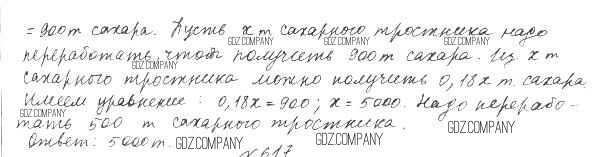 = 900т сахара. Пусть x т сахарного тростника надо
переработать, чтобы получить 900т сахара. Из x т
сахарного тростника можно получить 0,18x т. сахара
Имеем уравнение: 0,18x = 900; x = 5000. Надо перерабо-
тать 500 т сахарного тростника.
Ответ: 5000т.
№617
GDZ.COMPANY
GDZ.COMPANY
GDZ.COMPANY
GDZ.COMPANY
GDZ.COMPANY
GDZ.COMPANY
GDZ.COMPANY
GDZ.COMPANY